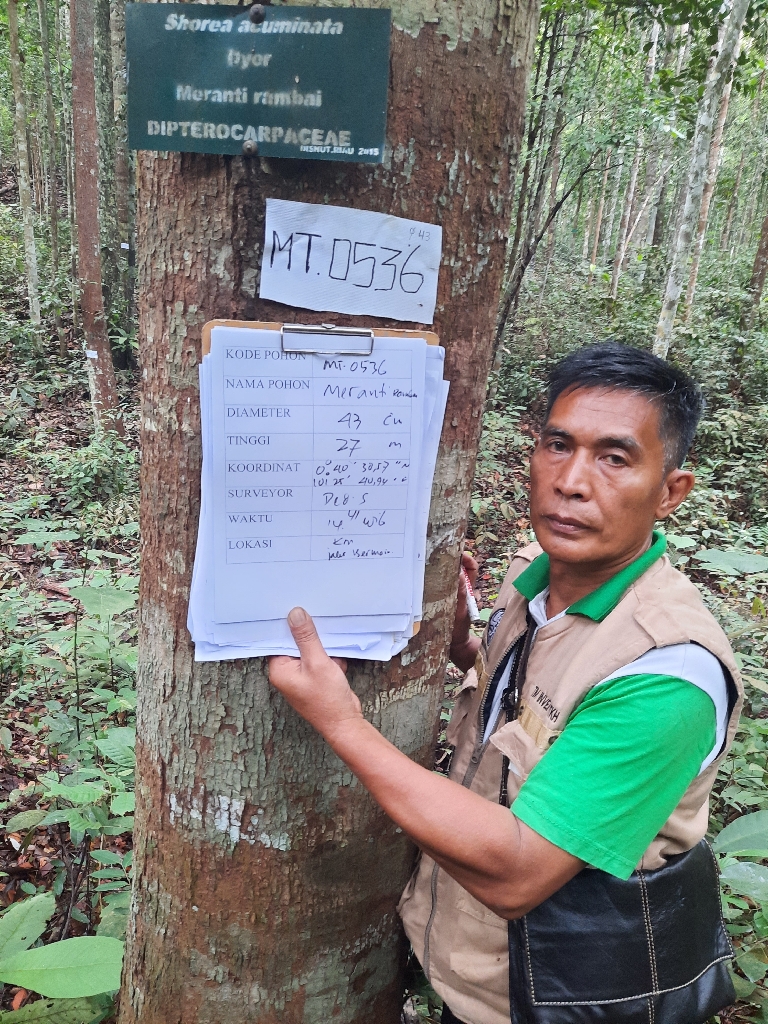 Shorea acuminata
Dyer
Meranti rambai
DIPTEROCARPACEAE
DISHUT.RIAU 2015
Ø 43
MT.0536
KODE POHON MT.0536
NAMA POHON Meranti
DIAMETER 43 Cm
TINGGI 27 m
KOORDINAT 0° 40'
101 25'
SURVEYOR
WAKTU 14 41 WIB
LOKASI